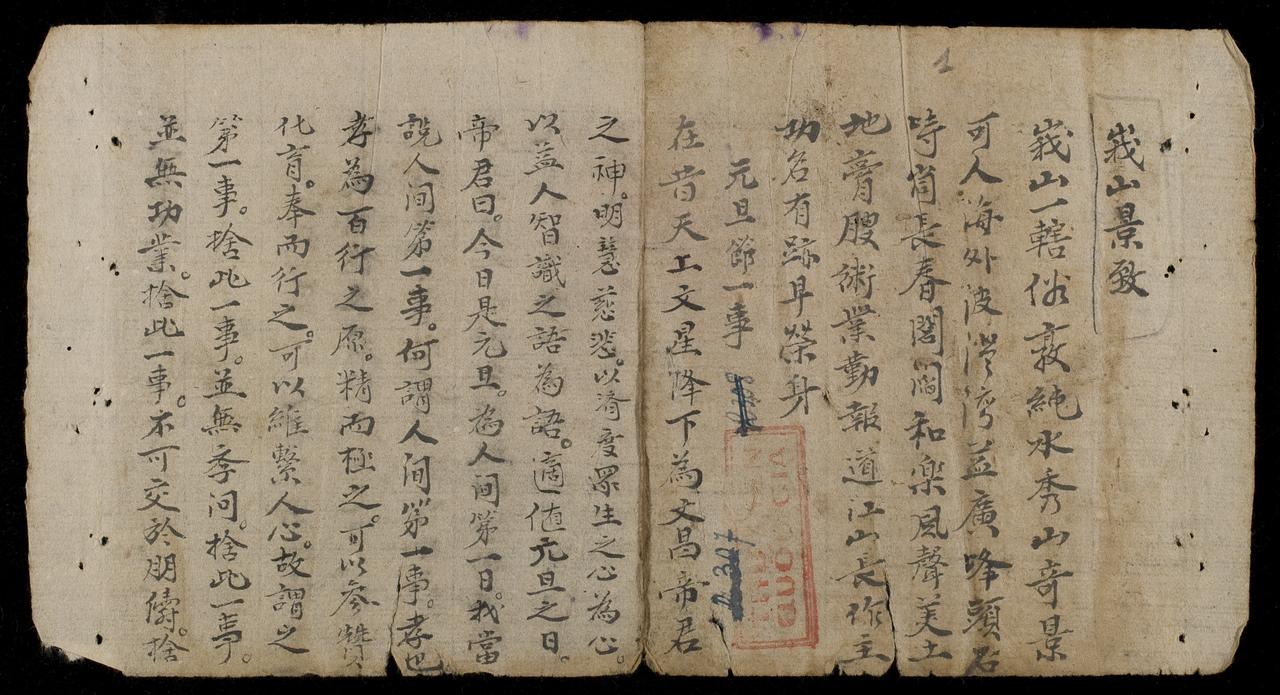 峩山景致
峩山一轄俗敦純水秀山奇景
可人海外波澄湾益廣峰頭石
時肖長春閭閻和楽風聲美土
地膏腴術業勤報道江山長作主
功名有跡早榮身
元旦節一事
在昔天上文星降下為文昌帝君
之神。明慧慈悲。以済度眾生之心為心。
以益人智識之語為語。適值元旦之日。
帝君曰。今日是元旦。為人间第一日。我當
說人间第一事。何謂人间第一事。孝也
孝為百行之原。精而極之。可以参贊
化育。奉而行之。可以維繫人心。故謂之
第一事。捨此一事。並無孝问。捨此一事。
並無功業。捨此一事。不可交於朋儔。捨